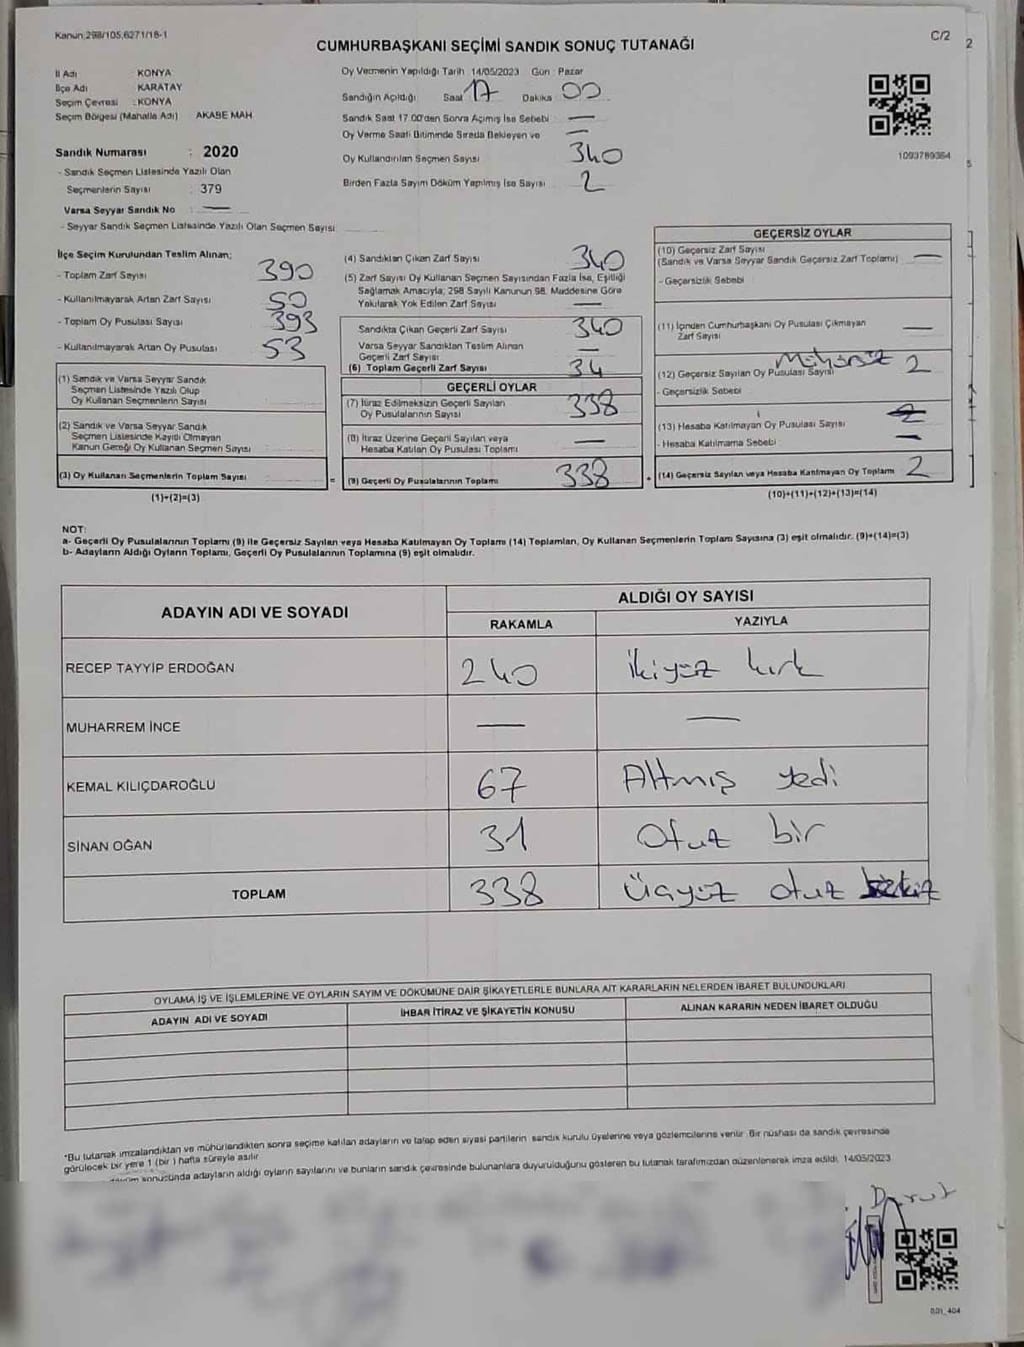 Kanun;298/105,6271/18-1
C/2
2
CUMHURBAŞKANI SEÇİMİ SANDIK SONUÇ TUTANAĞI
İl Adı : KONYA
İlçe Adı : KARATAY
Seçim Çevresi : KONYA
Seçim Bölgesi (Mahalle Adı) AKABE MAH
Sandık Numarası : 2020
- Sandık Seçmen Listesinde Yazılı Olan
Seçmenlerin Sayısı : 379
Varsa Seyyar Sandık No : —
- Seyyar Sandık Seçmen Listesinde Yazılı Olan Seçmen Sayısı
Oy Vermenin Yapıldığı Tarih 14/05/2023 Gün : Pazar
Sandığın Açıldığı Saat 17 Dakika 00
Sandık Saat 17.00'den Sonra Açılmış İse Sebebi : —
Oy Verme Saati Bitiminde Sırada Bekleyen ve —
Oy Kullandırılan Seçmen Sayısı 340
Birden Fazla Sayım Döküm Yapılmış İse Sayısı 2
1093789364
5
İlçe Seçim Kurulundan Teslim Alınan;
- Toplam Zarf Sayısı 390
- Kullanılmayarak Artan Zarf Sayısı 50
- Toplam Oy Pusulası Sayısı 393
- Kullanılmayarak Artan Oy Pusulası 53
(1) Sandık ve Varsa Seyyar Sandık
Seçmen Listesinde Yazılı Olup
Oy Kullanan Seçmenlerin Sayısı
(2) Sandık ve Varsa Seyyar Sandık
Seçmen Listesinde Kayıtlı Olmayan
Kanun Gereği Oy Kullanan Seçmen Sayısı
(3) Oy Kullanan Seçmenlerin Toplam Sayısı
(1)+(2)=(3)
=
(4) Sandıktan Çıkan Zarf Sayısı 340
(5) Zarf Sayısı Oy Kullanan Seçmen Sayısından Fazla İse, Eşitliği
Sağlamak Amacıyla; 298 Sayılı Kanunun 98. Maddesine Göre
Yakılarak Yok Edilen Zarf Sayısı —
Sandıkta Çıkan Geçerli Zarf Sayısı 340
Varsa Seyyar Sandıktan Teslim Alınan
Geçerli Zarf Sayısı —
(6) Toplam Geçerli Zarf Sayısı 34
GEÇERLİ OYLAR
(7) İtiraz Edilmeksizin Geçerli Sayılan
Oy Pusulalarının Sayısı 338
(8) İtiraz Üzerine Geçerli Sayılan veya
Hesaba Katılan Oy Pusulası Toplamı —
(9) Geçerli Oy Pusulalarının Toplamı 338
+
GEÇERSİZ OYLAR
(10) Geçersiz Zarf Sayısı
(Sandık ve Varsa Seyyar Sandık Geçersiz Zarf Toplamı) —
- Geçersizlik Sebebi
(11) İçinden Cumhurbaşkanı Oy Pusulası Çıkmayan
Zarf Sayısı —
Mühürsüz 2
(12) Geçersiz Sayılan Oy Pusulası Sayısı
- Geçersizlik Sebebi
(13) Hesaba Katılmayan Oy Pusulası Sayısı
- Hesaba Katılmama Sebebi —
(14) Geçersiz Sayılan veya Hesaba Katılmayan Oy Toplamı 2
(10)+(11)+(12)+(13)=(14)
NOT:
a- Geçerli Oy Pusulalarının Toplamı (9) ile Geçersiz Sayılan veya Hesaba Katılmayan Oy Toplamı (14) Toplamları, Oy Kullanan Seçmenlerin Toplam Sayısına (3) eşit olmalıdır. (9)+(14)=(3)
b- Adayların Aldığı Oyların Toplamı, Geçerli Oy Pusulalarının Toplamına (9) eşit olmalıdır.
ADAYIN ADI VE SOYADI
ALDIĞI OY SAYISI
RAKAMLA YAZIYLA
RECEP TAYYİP ERDOĞAN 240 İkiyüz kırk
MUHARREM İNCE — —
KEMAL KILIÇDAROĞLU 67 Altmış yedi
SİNAN OĞAN 31 Otuz bir
TOPLAM 338 Üçyüz otuz
OYLAMA İŞ VE İŞLEMLERİNE VE OYLARIN SAYIM VE DÖKÜMÜNE DAİR ŞİKAYETLERLE BUNLARA AİT KARARLARIN NELERDEN İBARET BULUNDUKLARI
ADAYIN ADI VE SOYADI İHBAR İTİRAZ VE ŞİKAYETİN KONUSU ALINAN KARARIN NEDEN İBARET OLDUĞU
*Bu tutanak imzalandıktan ve mühürlendikten sonra seçime katılan adayların ve talep eden siyasi partilerin sandık kurulu üyelerine veya gözlemcilerine verilir. Bir nüshası da sandık çevresinde
görülecek bir yere 1 (bir ) hafta süreyle asılır.
sonucunda adayların aldığı oyların sayılarını ve bunların sandık çevresinde bulunanlara duyurulduğunu gösteren bu tutanak tarafımızdan düzenlenerek imza edildi. 14/05/2023
001_404